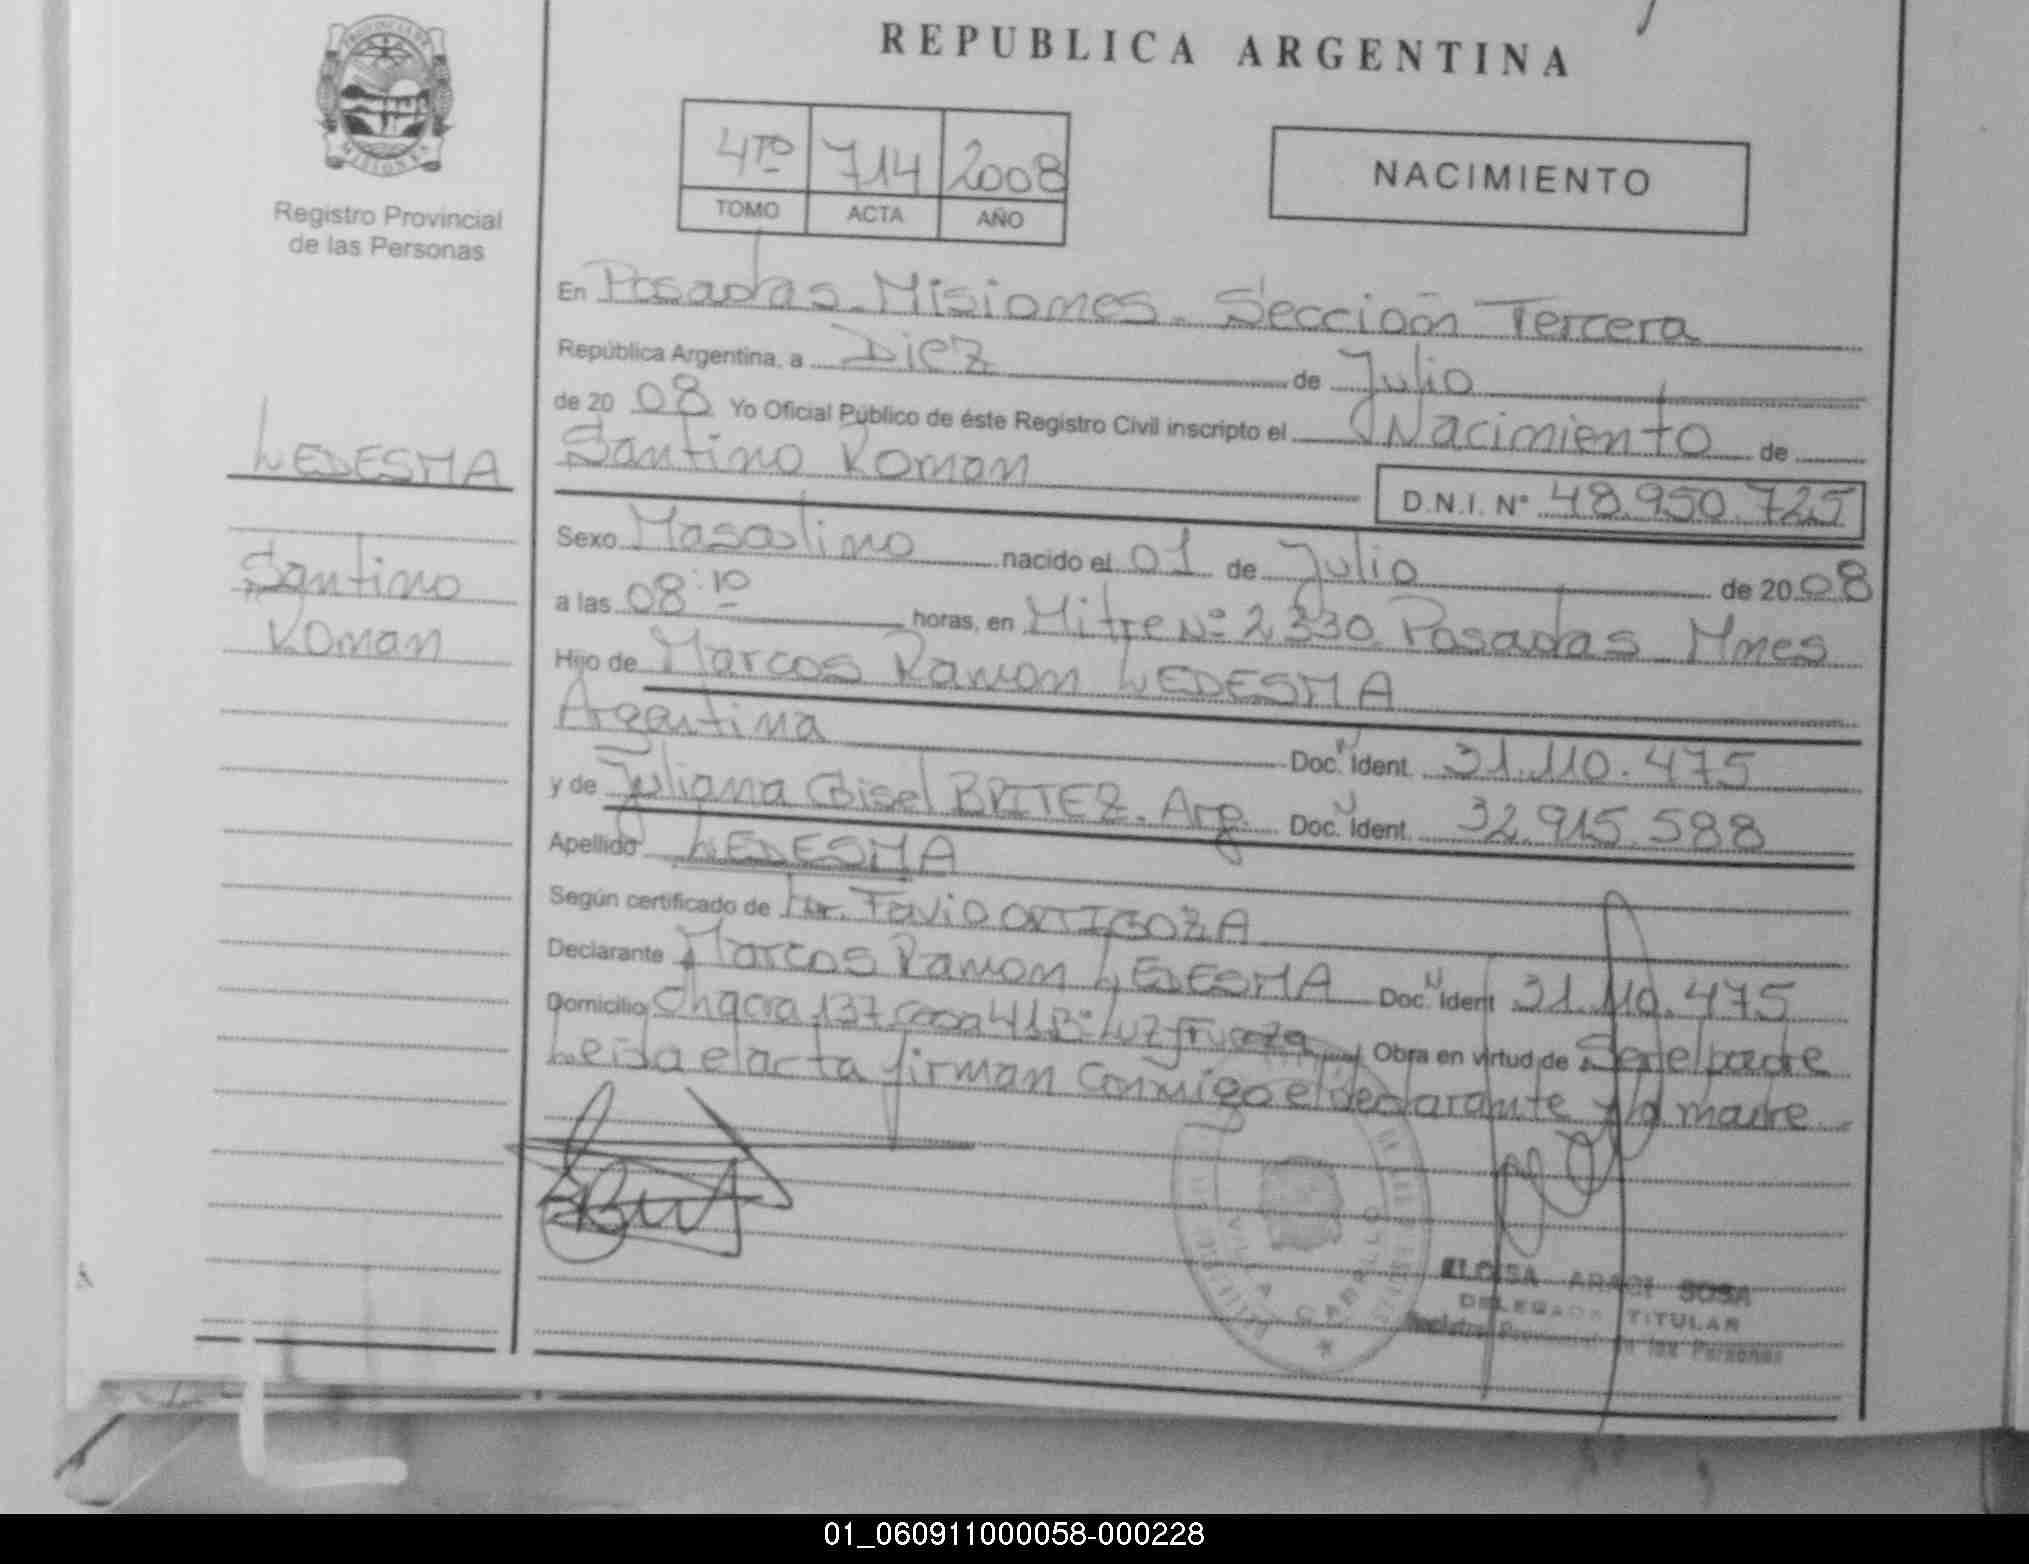 REPUBLICA ARGENTINA
PROVINCIA DE
MISIONES
Registro Provincial
de las Personas
4TO 714 2008
TOMO ACTA AÑO
NACIMIENTO
En Posadas - Misiones - Sección Tercera
República Argentina, a Diez de Julio
de 20 08 Yo Oficial Público de éste Registro Civil inscripto el Nacimiento de
LEDESMA
Santino Roman
D.N.I. Nº 48.950.725
Santino
Roman
Sexo Masculino nacido el 01 de Julio de 2008
a las 08:10 horas, en Mitre Nº 2.330 Posadas Mnes
Hijo de Marcos Ramon LEDESMA
Argentina Doc. Ident. 31.110.475
y de Juliana Gisel BRITEZ. Arg. Doc. Ident. 32.915.588
Apellido LEDESMA
Según certificado de Favio ORTIGOZA
Declarante Marcos Ramon LEDESMA Doc. Ident 31.110.475
Domicilio Chacra 137 casa 41 Bº Luz y Fuerza Obra en virtud de Ser el padre
Leida el acta firman conmigo el declarante y la madre
VILLA CABELLO
ELOISA ARACI SOSA
DELEGADA TITULAR
Registro Provincial de las Personas
01_060911000058-000228